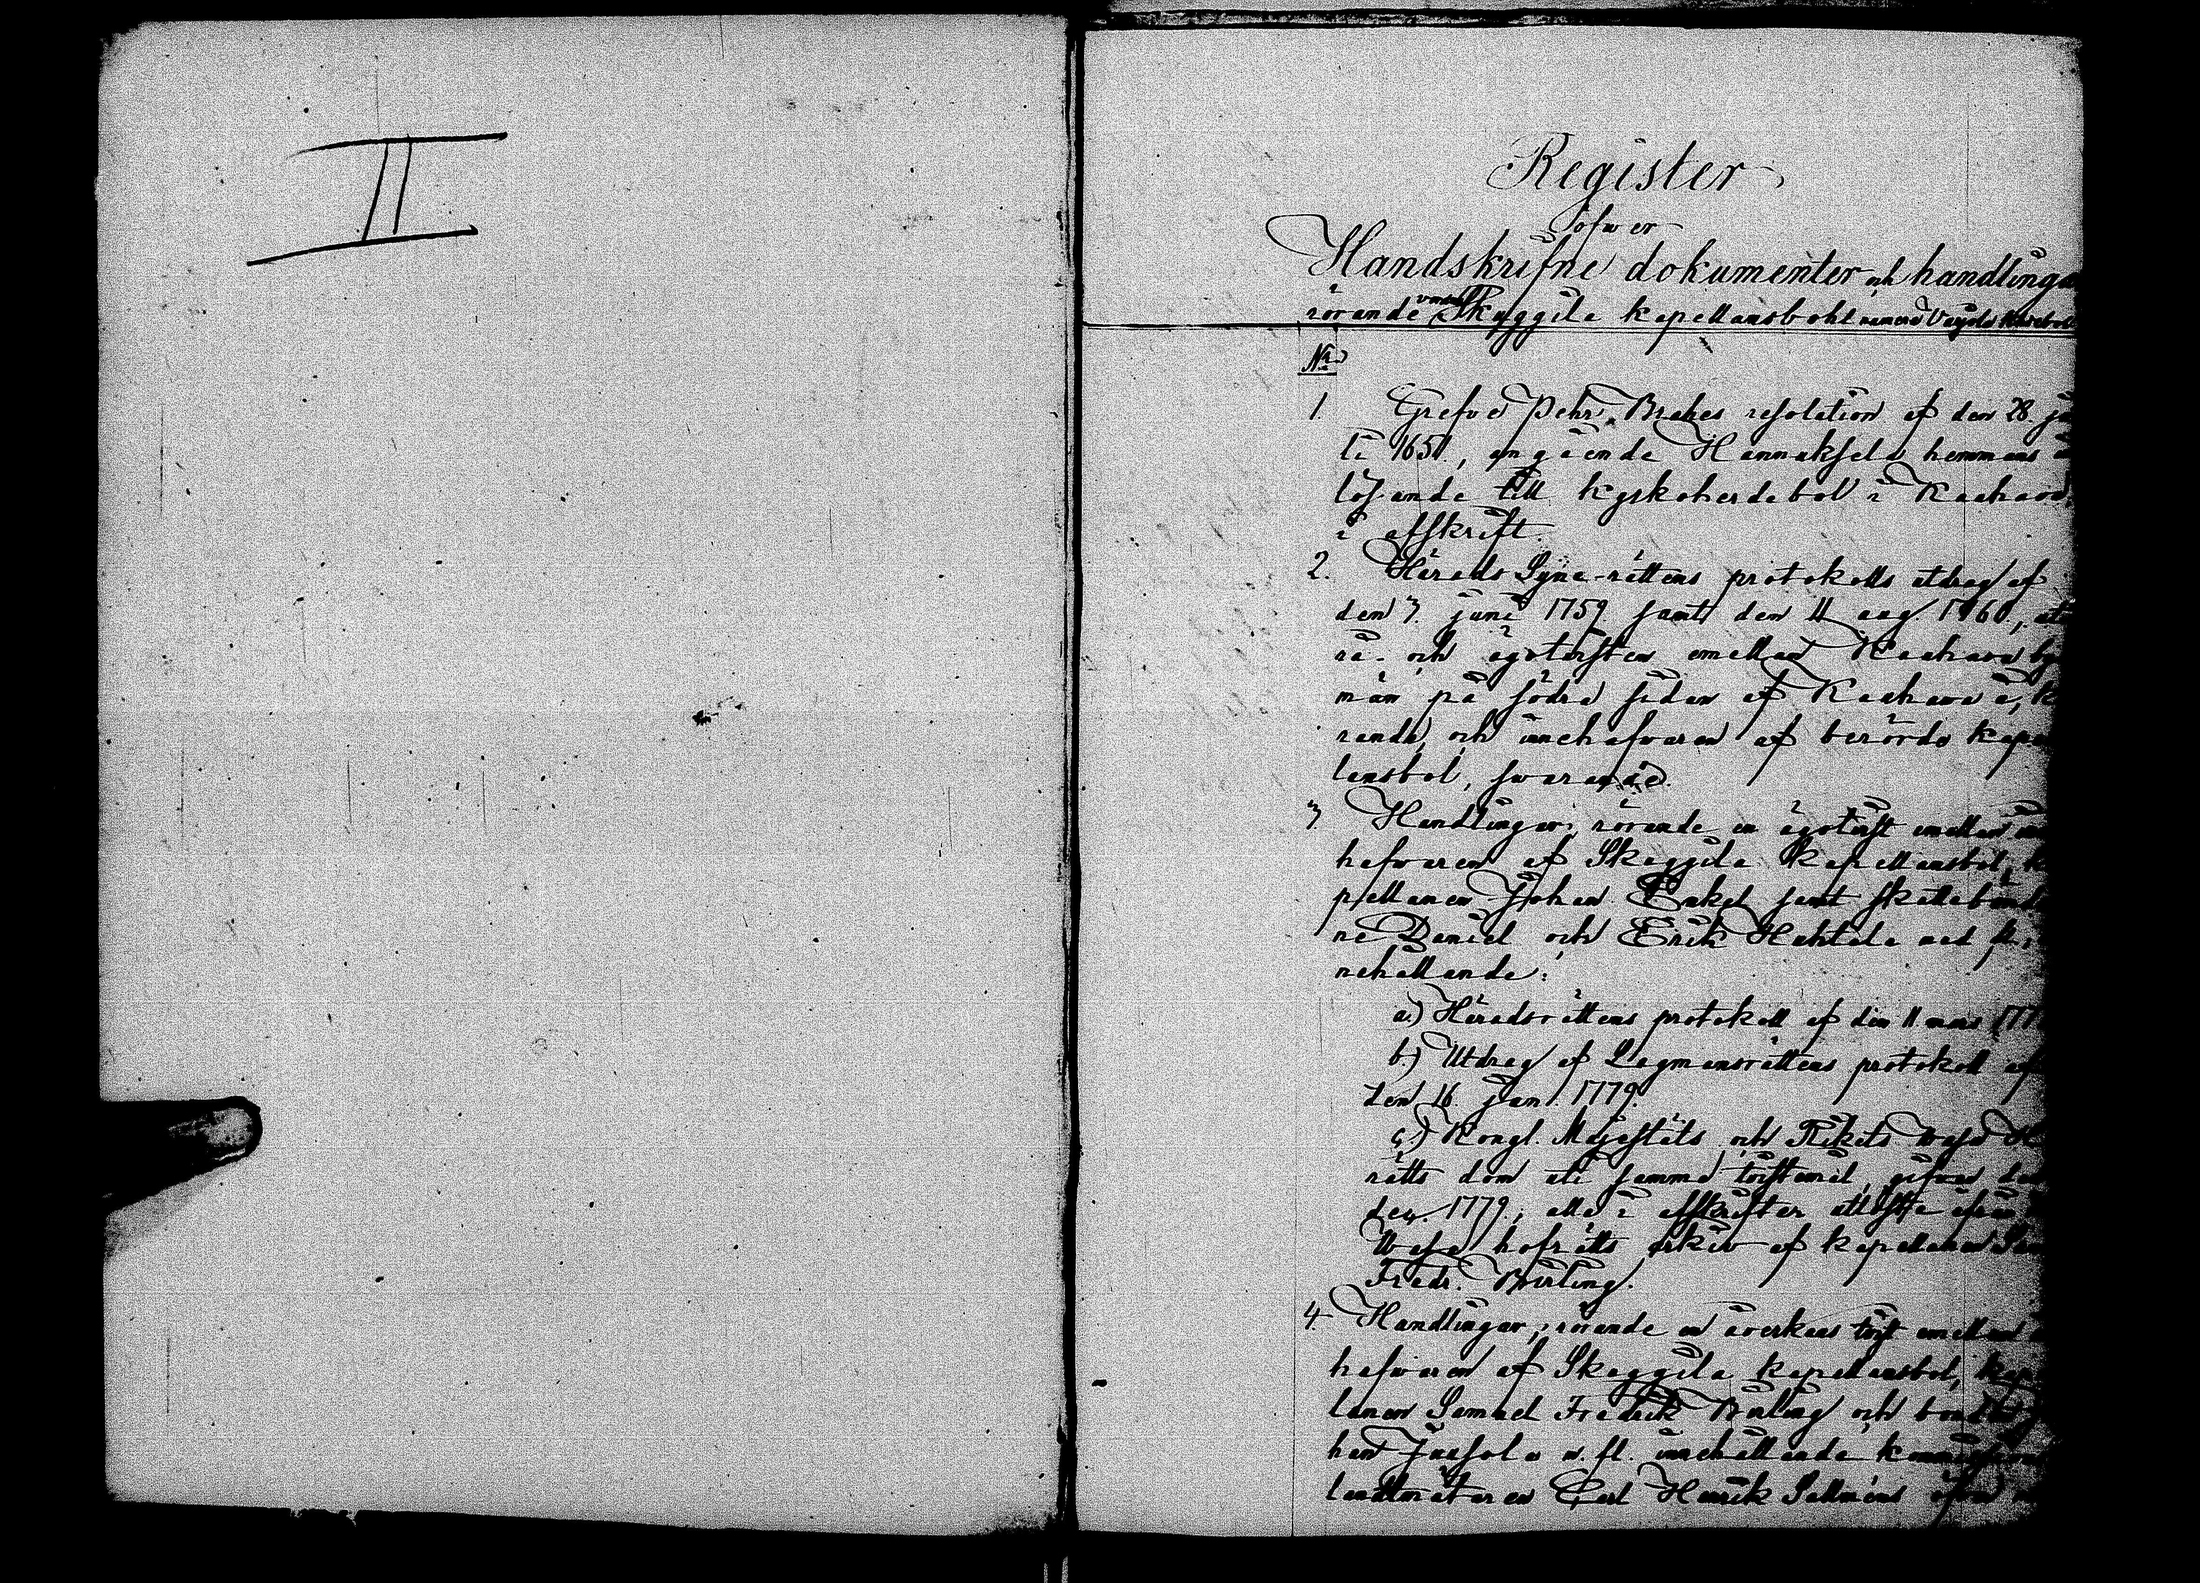 II
Register
öfwer
Handskrifne dokumenter och handlinga
rörande Skaggila kapellansbohl
No
1. Grefve Pehr Brahes resolution af den 28. ju
li 1651, angående Hannuksela hemmans
lösande till kyrkoherdebol i Kauhava,
i afskrift.
2. Härads Syne-rättens protokolls utdrag af
den 7. juni 1759 samt den 11 aug. 1760,
rå- och ägotvisten emellan Kauhava by
män på södra sidan af Kauhava å, k
rande, och innehafvaren af berörde kapel
lansbol, svarande.
3. Handlingar, rörande en ägotvist emellan inne
hafvaren af Skaggila kapellansbol, k
pellanen Johan Enkel samt skattebönder
ne Daniel och Erik Huhtala med fl.,
nehållande:
a.) Häradsrättens protokoll af den 11 mars 177
b.) Utdrag af Lagmansrättens protokoll af
den 16. jan. 1779.
c.) Kongl. Majestäts och Rikets Wasa H
rätts dom uti samma tvistemål, gifven den
dec. 1779; alla i afskrifter utlöste ifrån
Wasa hofrätts arkiv af kapellanen Sam
Fredr. Bürling.
4. Handlingar, rörande en åverkans tvist emellan
hafvaren af Skaggila kapellansbol, kapel
lanen Samuel Fredrik Bürling och bonden Jo
han Jussola m. fl. innehållande kommissions
landtmätaren Carl Henrik Sallméns öfver